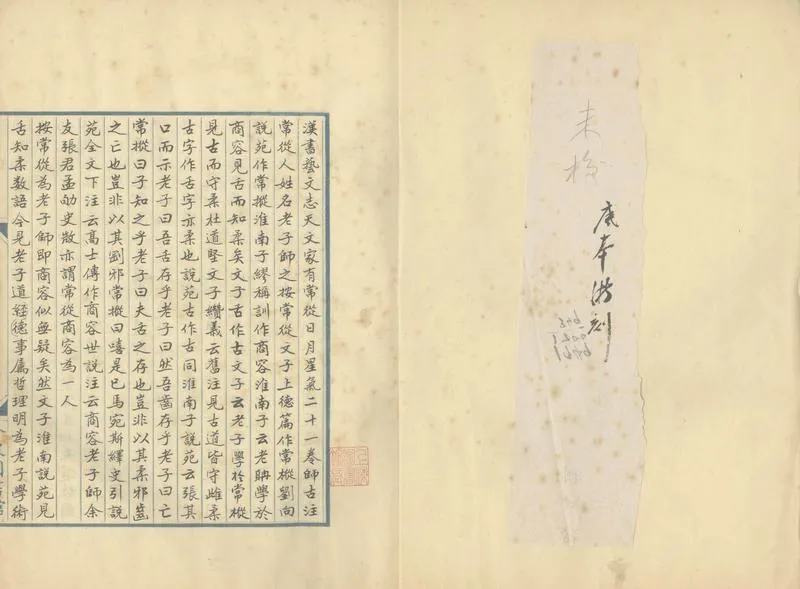 未校
底本潛刻
漢書藝文志天文家有常從日月星氣二十一卷師古注
常從人姓名老子師之按常從文子上德篇作常樅劉向
說苑作常摐淮南子繆稱訓作商容淮南子云老聃學於
商容見舌而知柔矣文子舌作古文子云老子學於常樅
見古而守柔杜道堅文子纘義云舊注見古道皆守雌柔
古字作舌字亦柔也說苑古作古同淮南子說苑云張其
口而示老子曰吾舌存乎老子曰然吾齒存乎老子曰亡
常摐曰子知之乎老子曰夫舌之存也豈非以其柔邪齒
之亡也豈非以其剛邪常摐曰嘻是已馬宛斯繹史引說
苑全文下注云高士傳作商容世說注云商容老子師余
友張君孟劬史敚亦謂常從商容為一人
按常從為老子師即商容似無疑矣然文子淮南說苑見
舌知柔數語今見老子道經德事屬哲理明為老子學術